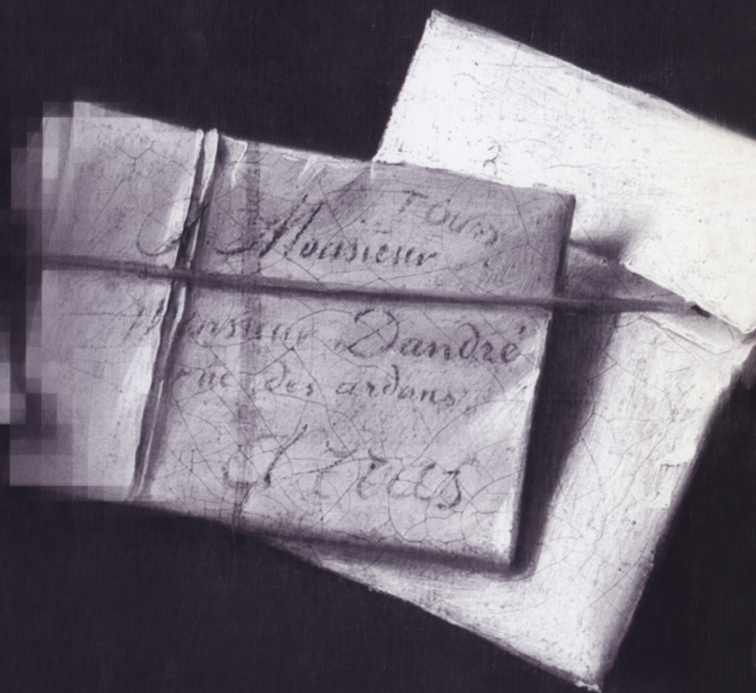 Tours
A Monsieur
Monsieur Dandré
rue des ardans
A rras